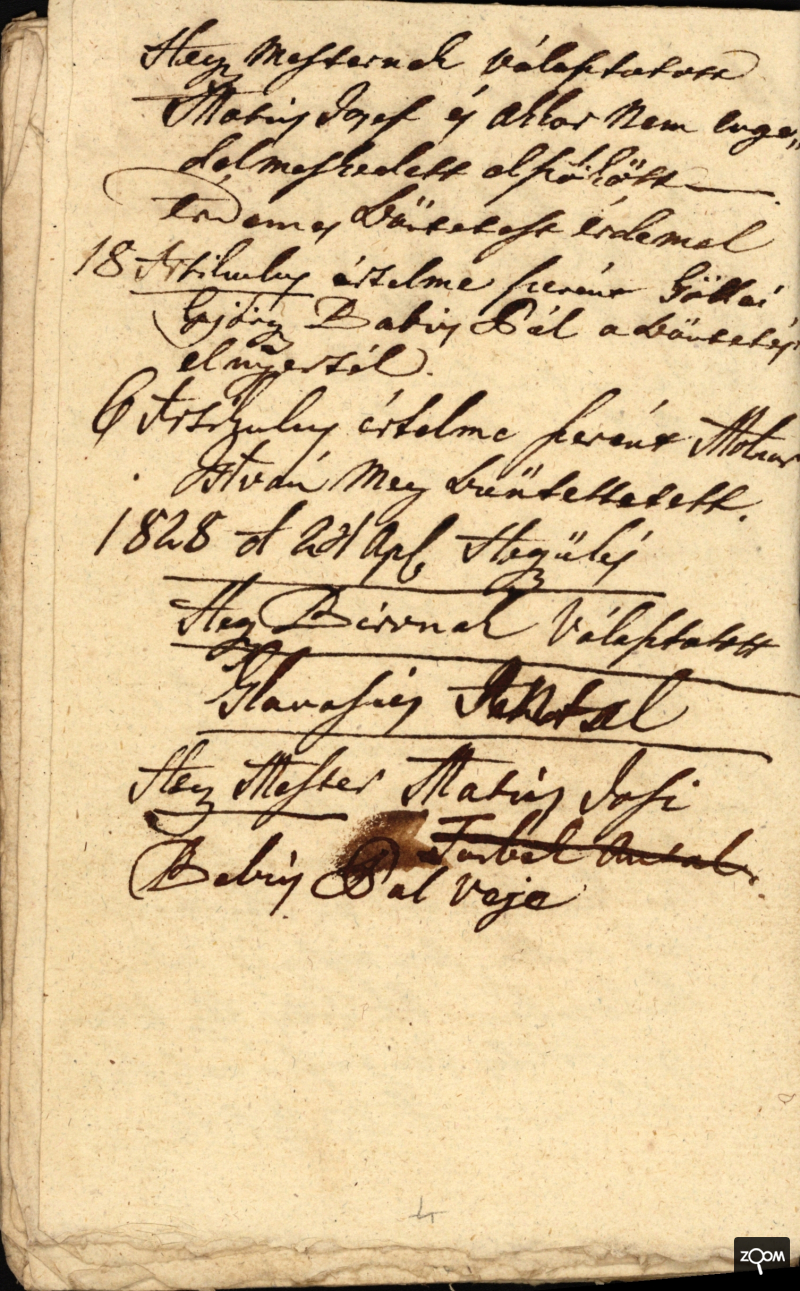 Hegy Mesternek Választatott
Matus Josef és akkor Nem enge„
delmeskedett elszökött
Érdemes Büntetést érdemel
18 Artikulus értelme szerént Göllei
György Babits Pál a büntetést
elnyerték.
6 Artikulus értelme szerént Molnar
István Meg büntettetett.
1828 d 24 Apl Hegy ülés
Hegy Birónak Választatott
Antal
Hegy Mester Matus Josi
Antal
Babits Pál Veje
4
ZOOM